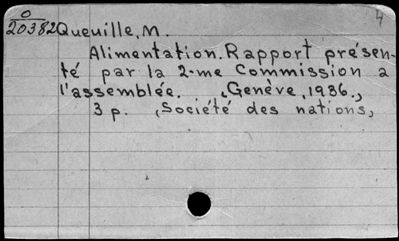 O 4
20382 Queuille, M.
Alimentation. Rapport présen-
té par la 2-me Commission a
l'assemblée. , Genève, 1936.,
3 p. , Société des nations,